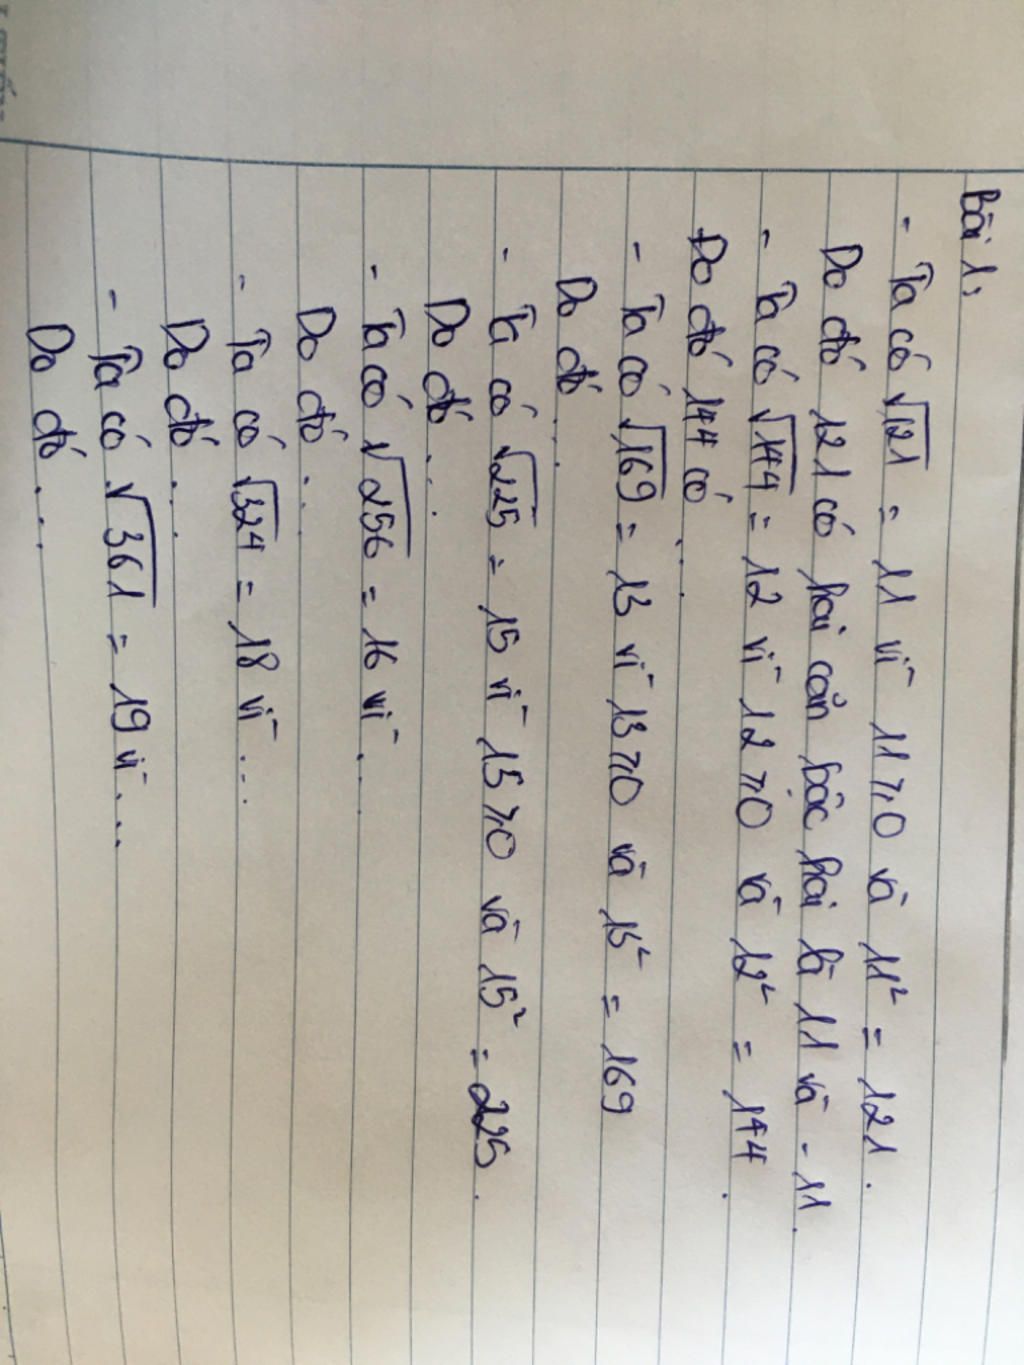 Bài 1,
- Ta có √121 = 11 vì 11 ≥ 0 và 11² = 121.
Do đó 121 có hai căn bậc hai là 11 và -11.
- Ta có √144 = 12 vì 12 ≥ 0 và 12² = 144.
Do đó 144 có ...
- Ta có √169 = 13 vì 13 ≥ 0 và 13² = 169
Do đó ...
- Ta có √225 = 15 vì 15 ≥ 0 và 15² = 225.
Do đó ...
- Ta có √256 = 16 vì ...
Do đó ...
- Ta có √324 = 18 vì ...
Do đó ...
- Ta có √361 = 19 vì ...
Do đó ...